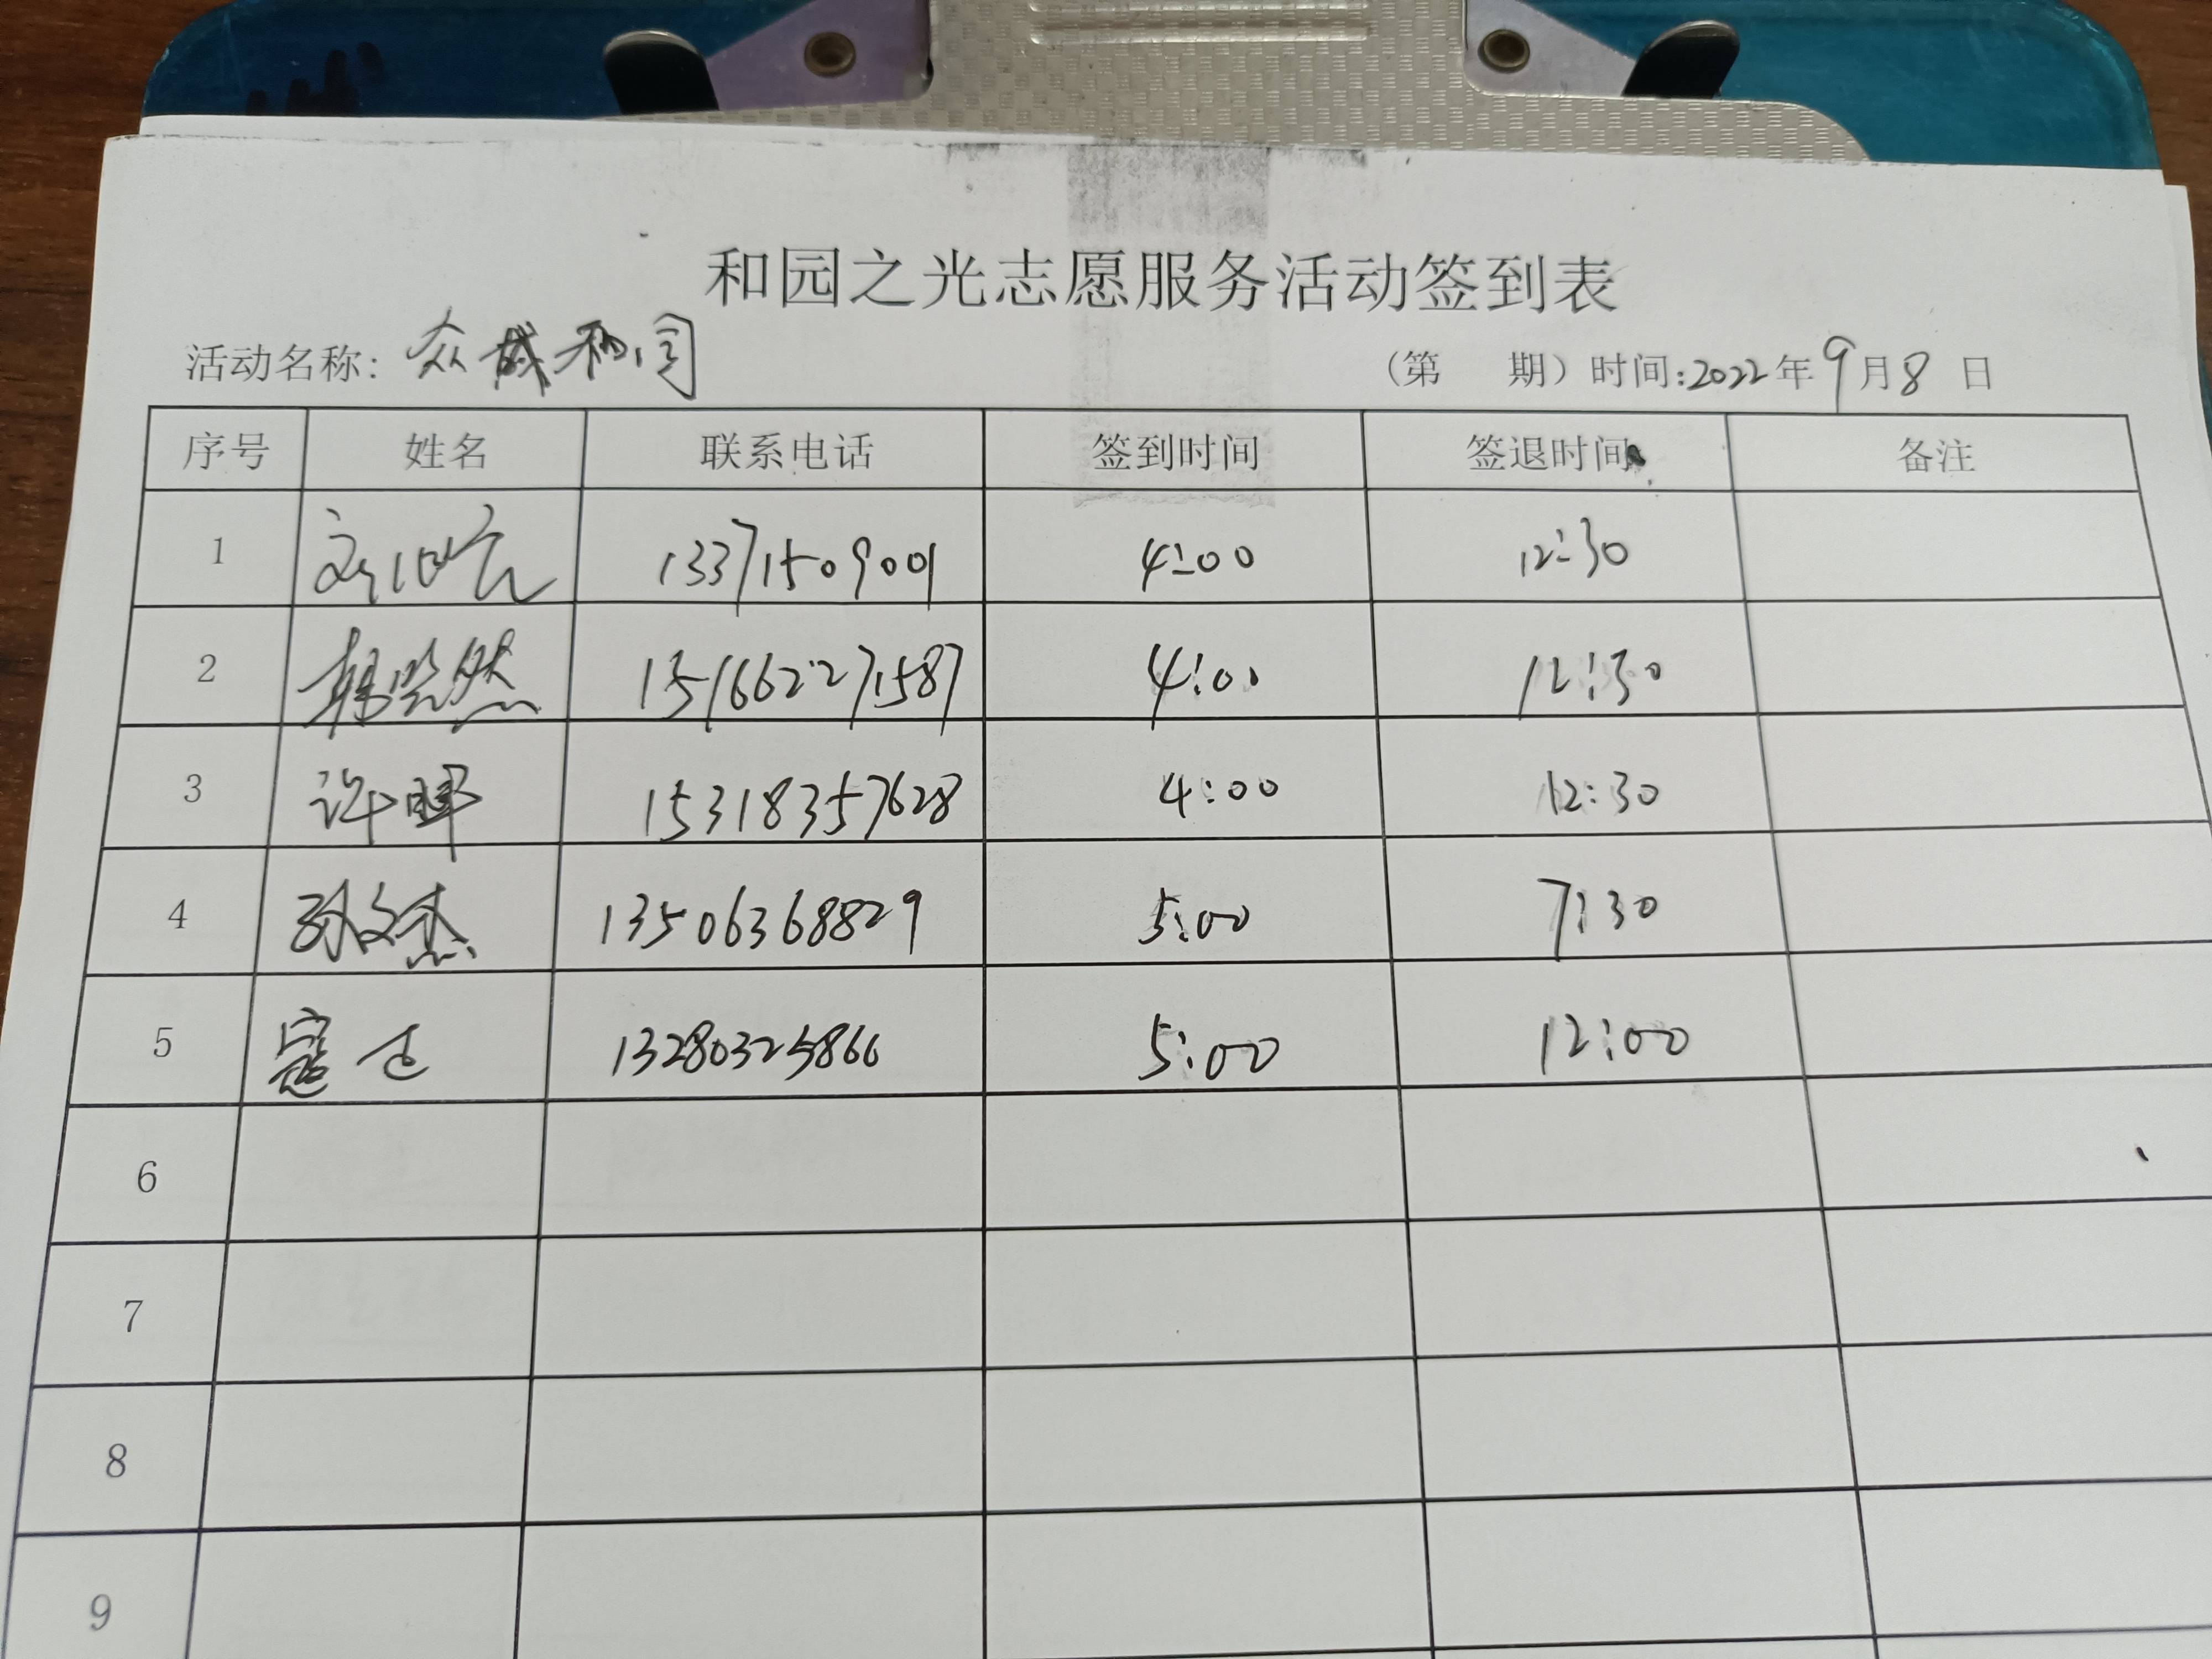 和园之光志愿服务活动签到表
活动名称: 众成和园 (第 期) 时间:2022年9月8日
序号 姓名 联系电话 签到时间 签退时间 备注
1 13371509001 4:00 12:30
2 韩浩然 15166227587 4:00 12:30
3 许晖 15318357628 4:00 12:30
4 孙文杰 13506368829 5:00 7:30
5 13280325866 5:00 12:00
6
7
8
9